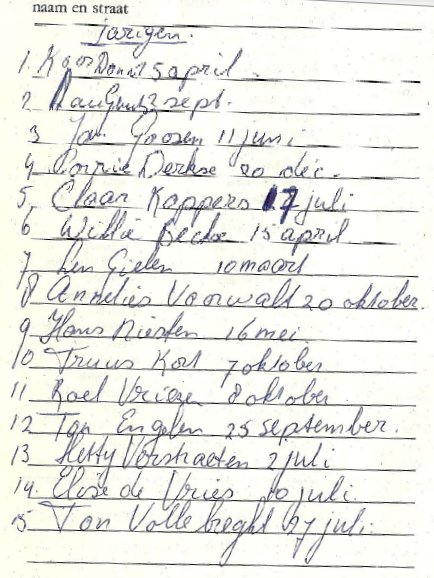 naam en straat
jarigen.
1 5 april
2 sept.
3 Jan Goosen 11 juni
4 Corrie Derkse 20 dec.
5, Claar Kappers 17 juli
6 Willie 15 april
7 Len Gielen 10 maart
8 Annelies Voorwalt 20 oktober.
9 Hans Niesten 16 mei
10 Truus Kort 7 oktober
11 Roel Vriezen 8 oktober
12 Ton Engelen 25 september.
13 Hetty Verstraeten 2 juli
14. Elose de Vries juli.
15 Ton Vollebreght 27 juli.